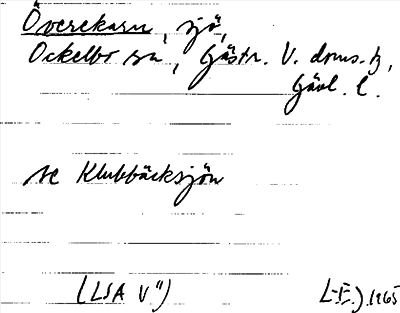 Överekaren, sjö,
Ockelbo sn, Gästr. V. doms.h,
Gävl. l.
se Klubbäcksjön
(LSA V")
L-E.) 1965